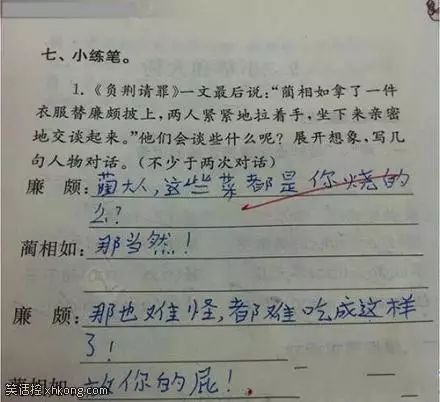 七、小练笔。
1.《负荆请罪》一文最后说:“蔺相如拿了一件
衣服替廉颇披上,两人紧紧地拉着手,坐下来亲密
地交谈起来。”他们会谈些什么呢?展开想象,写几
句人物对话。(不少于两次对话)
廉 颇:蔺大人,这些菜都是你烧的
么?
蔺相如:那当然!
廉 颇:那也难怪,都难吃成这样
了!
蔺相如 放你的屁!
笑话控xhkong.com